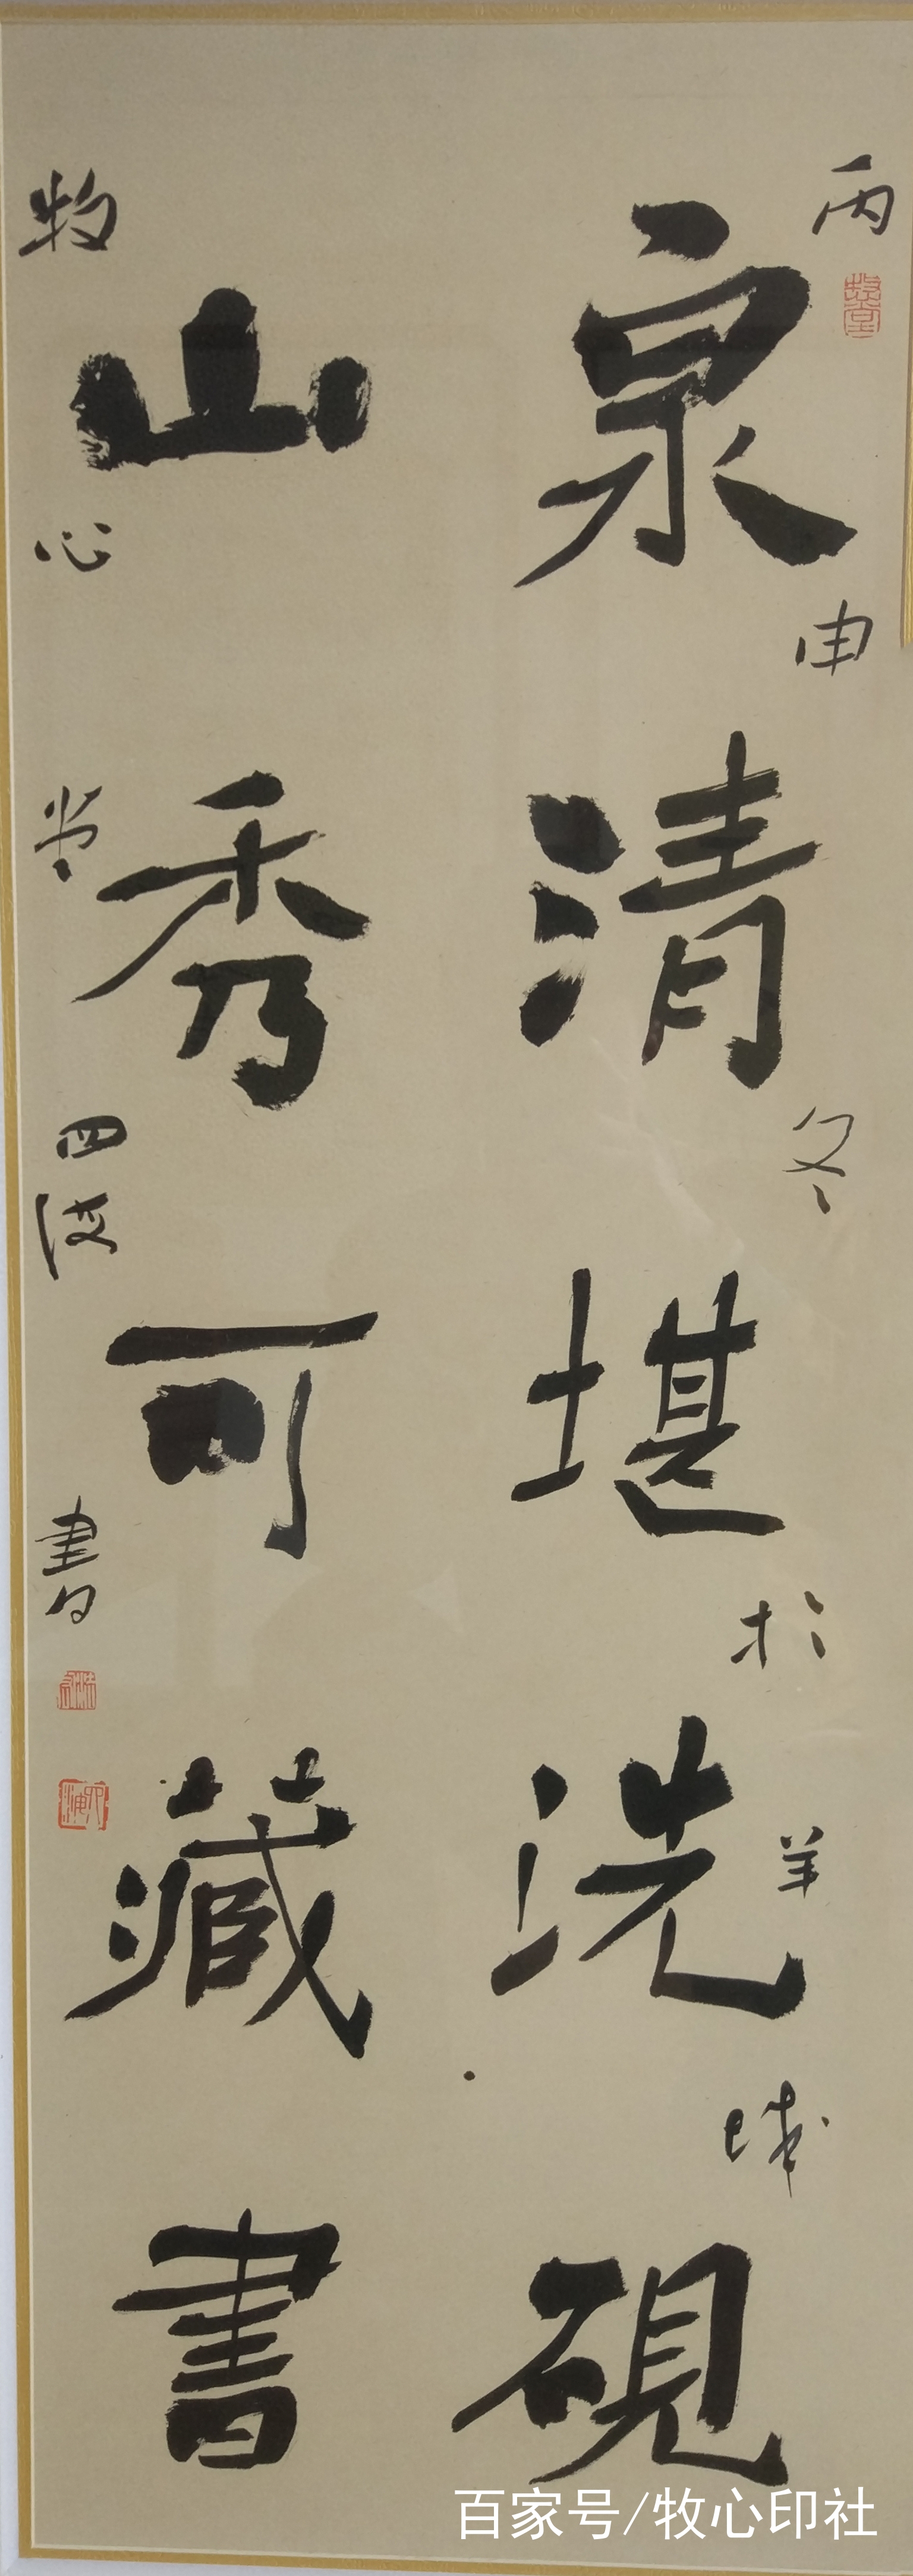 丙申冬於羊城
泉清堪洗硯
山秀可藏書
牧心堂四海書
四海
百家号/牧心印社